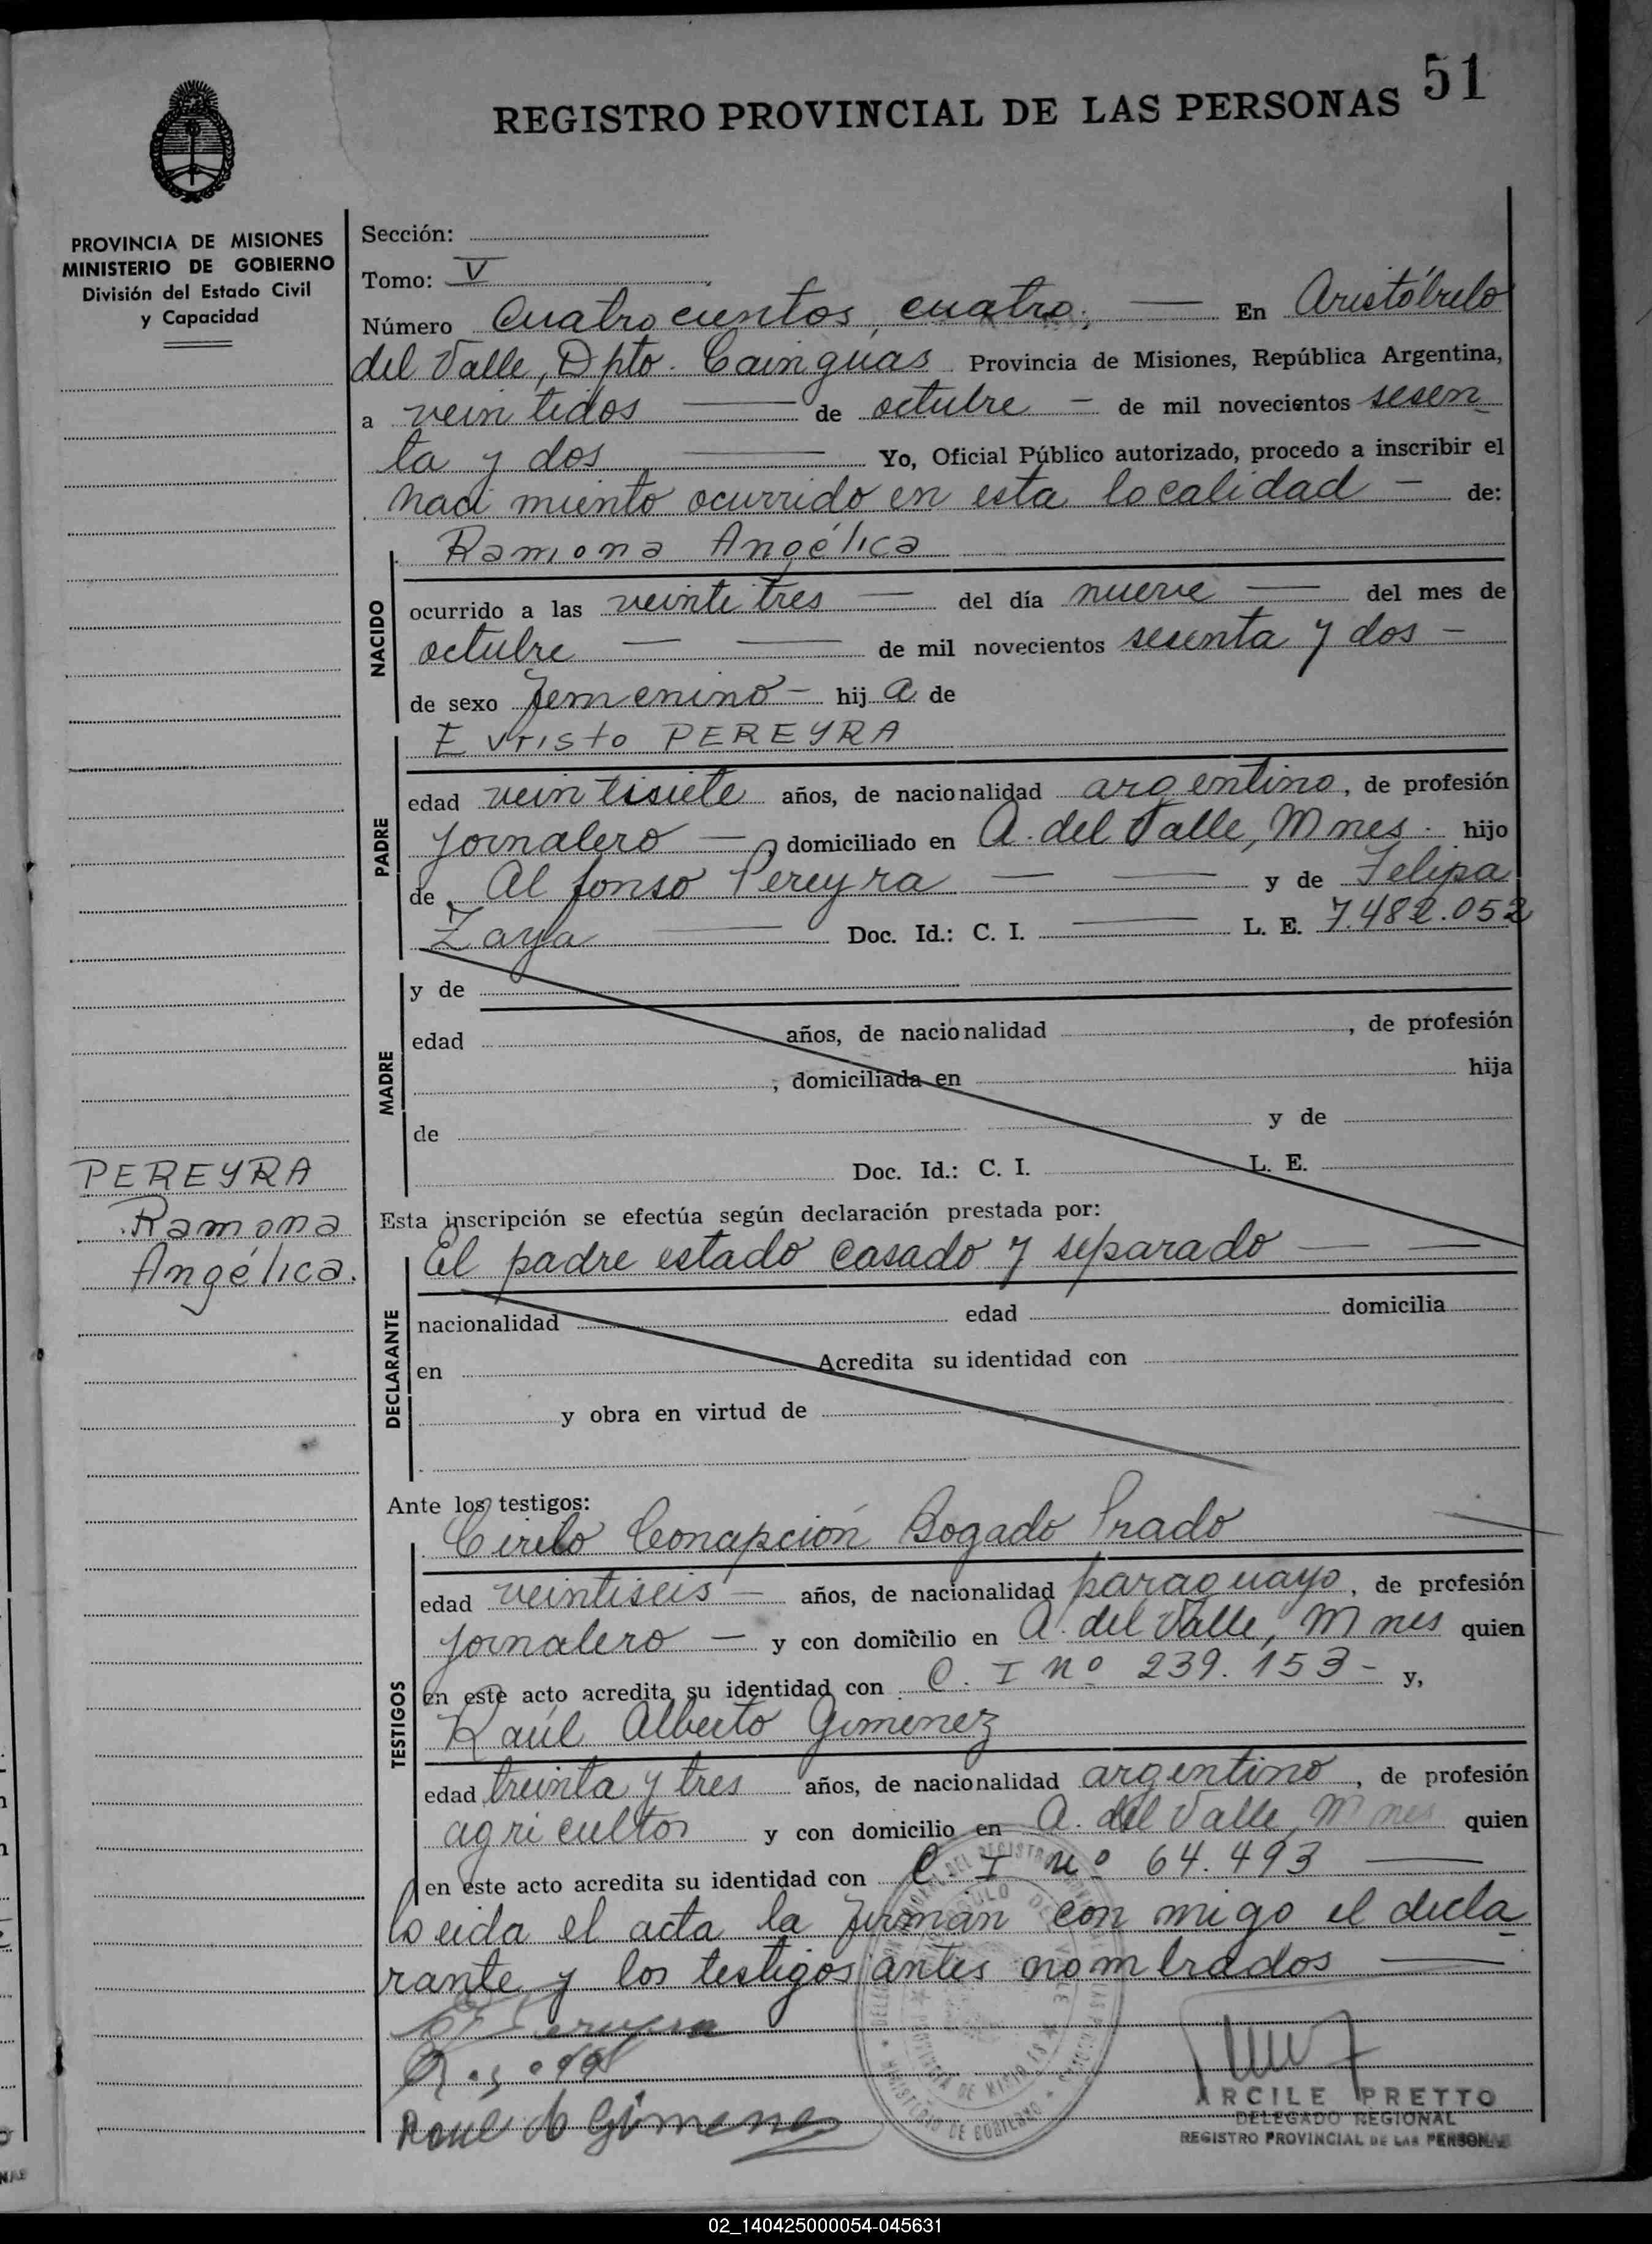 51
REGISTRO PROVINCIAL DE LAS PERSONAS
PROVINCIA DE MISIONES
MINISTERIO DE GOBIERNO
División del Estado Civil
y Capacidad
Sección:
Tomo: V
Número Cuatrocientos cuatro; — En Aristóbulo
del Valle, Dpto. Cainguas Provincia de Misiones, República Argentina,
a veintidos — de octubre — de mil novecientos sesen
ta y dos — Yo, Oficial Público autorizado, procedo a inscribir el
naci miento ocurrido en esta localidad — de:
NACIDO
Ramona Angélica
ocurrido a las veinte tres — del día nueve — del mes de
octubre — — de mil novecientos sesenta y dos —
de sexo femenino — hij a de
PADRE
Evristo PEREYRA
edad veintisiete años, de nacionalidad argentino, de profesión
jornalero — domiciliado en A. del Valle, Mnes. hijo
de Alfonso Pereyra — — y de Felipa
Zaya — Doc. Id.: C. I. — L. E. 7.482.052
MADRE
y de
edad años, de nacionalidad , de profesión
, domiciliada en hija
de y de
Doc. Id.: C. I. L. E.
PEREYRA
Ramona
Angélica.
Esta inscripción se efectúa según declaración prestada por:
DECLARANTE
El padre estado casado y separado — —
nacionalidad edad domicilia
en Acredita su identidad con
y obra en virtud de
Ante los testigos:
TESTIGOS
Cirilo Concepción Bogado Prado
edad veintiseis — años, de nacionalidad paraguayo, de profesión
jornalero — y con domicilio en A. del Valle, Mnes quien
en este acto acredita su identidad con C. I nº 239.153 - y,
Raúl Alberto Gimenez
edad treinta y tres años, de nacionalidad argentino, de profesión
agricultor y con domicilio en A. del Valle, Mnes quien
en este acto acredita su identidad con C. I nº 64.493 —
Leida el acta la firman con migo el decla
rante y los testigos antes nombrados —
E. Pereyra
Raul A Gimenez
ARCILE PRETTO
DELEGADO REGIONAL
REGISTRO PROVINCIAL DE LAS PERSONAS
PROVINCIA DE MISIONES
MINISTERIO DE GOBIERNO
02_140425000054-045631